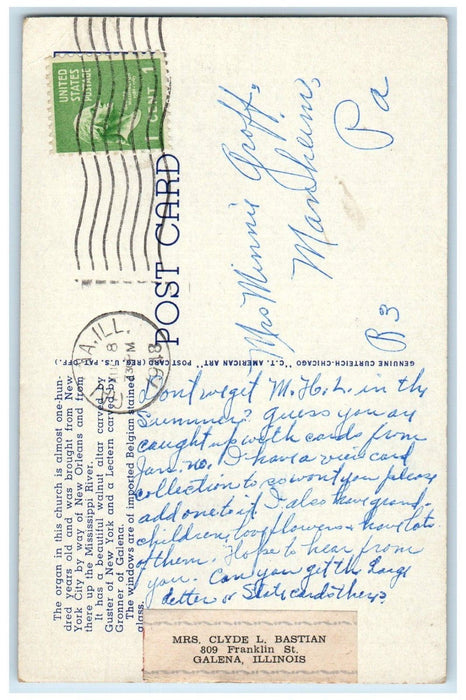 UNITED
STATES
POSTAGE
1
CENT
A, ILL.
8
1943
POST CARD
Mrs Minnie Groff,
Manheim,
Pa
R 3
GENUINE CURTEICH-CHICAGO "C.T. AMERICAN ART" POST CARD (REG. U.S. PAT. OFF.)
The organ in this church is almost one-hun-
dred years old and was brought from New
York City by way of New Orleans and from
there up the Mississippi River.
It has a beautiful walnut altar carved by
Guster of New York and a Lectern carved by
Gronner of Galena.
The windows are of imported Belgian stained
glass.
Don't we get M.H.L. in the
Summer? Guess you are
caught up with cards from
Jan. no. I have a view card
collection to so wont you please
add one to it I also have grand-
children, love flowers & have lots
of them. Hope to hear from
you. Can you get the Large
Letter or State cards there?
MRS. CLYDE L. BASTIAN
809 Franklin St.
GALENA, ILLINOIS